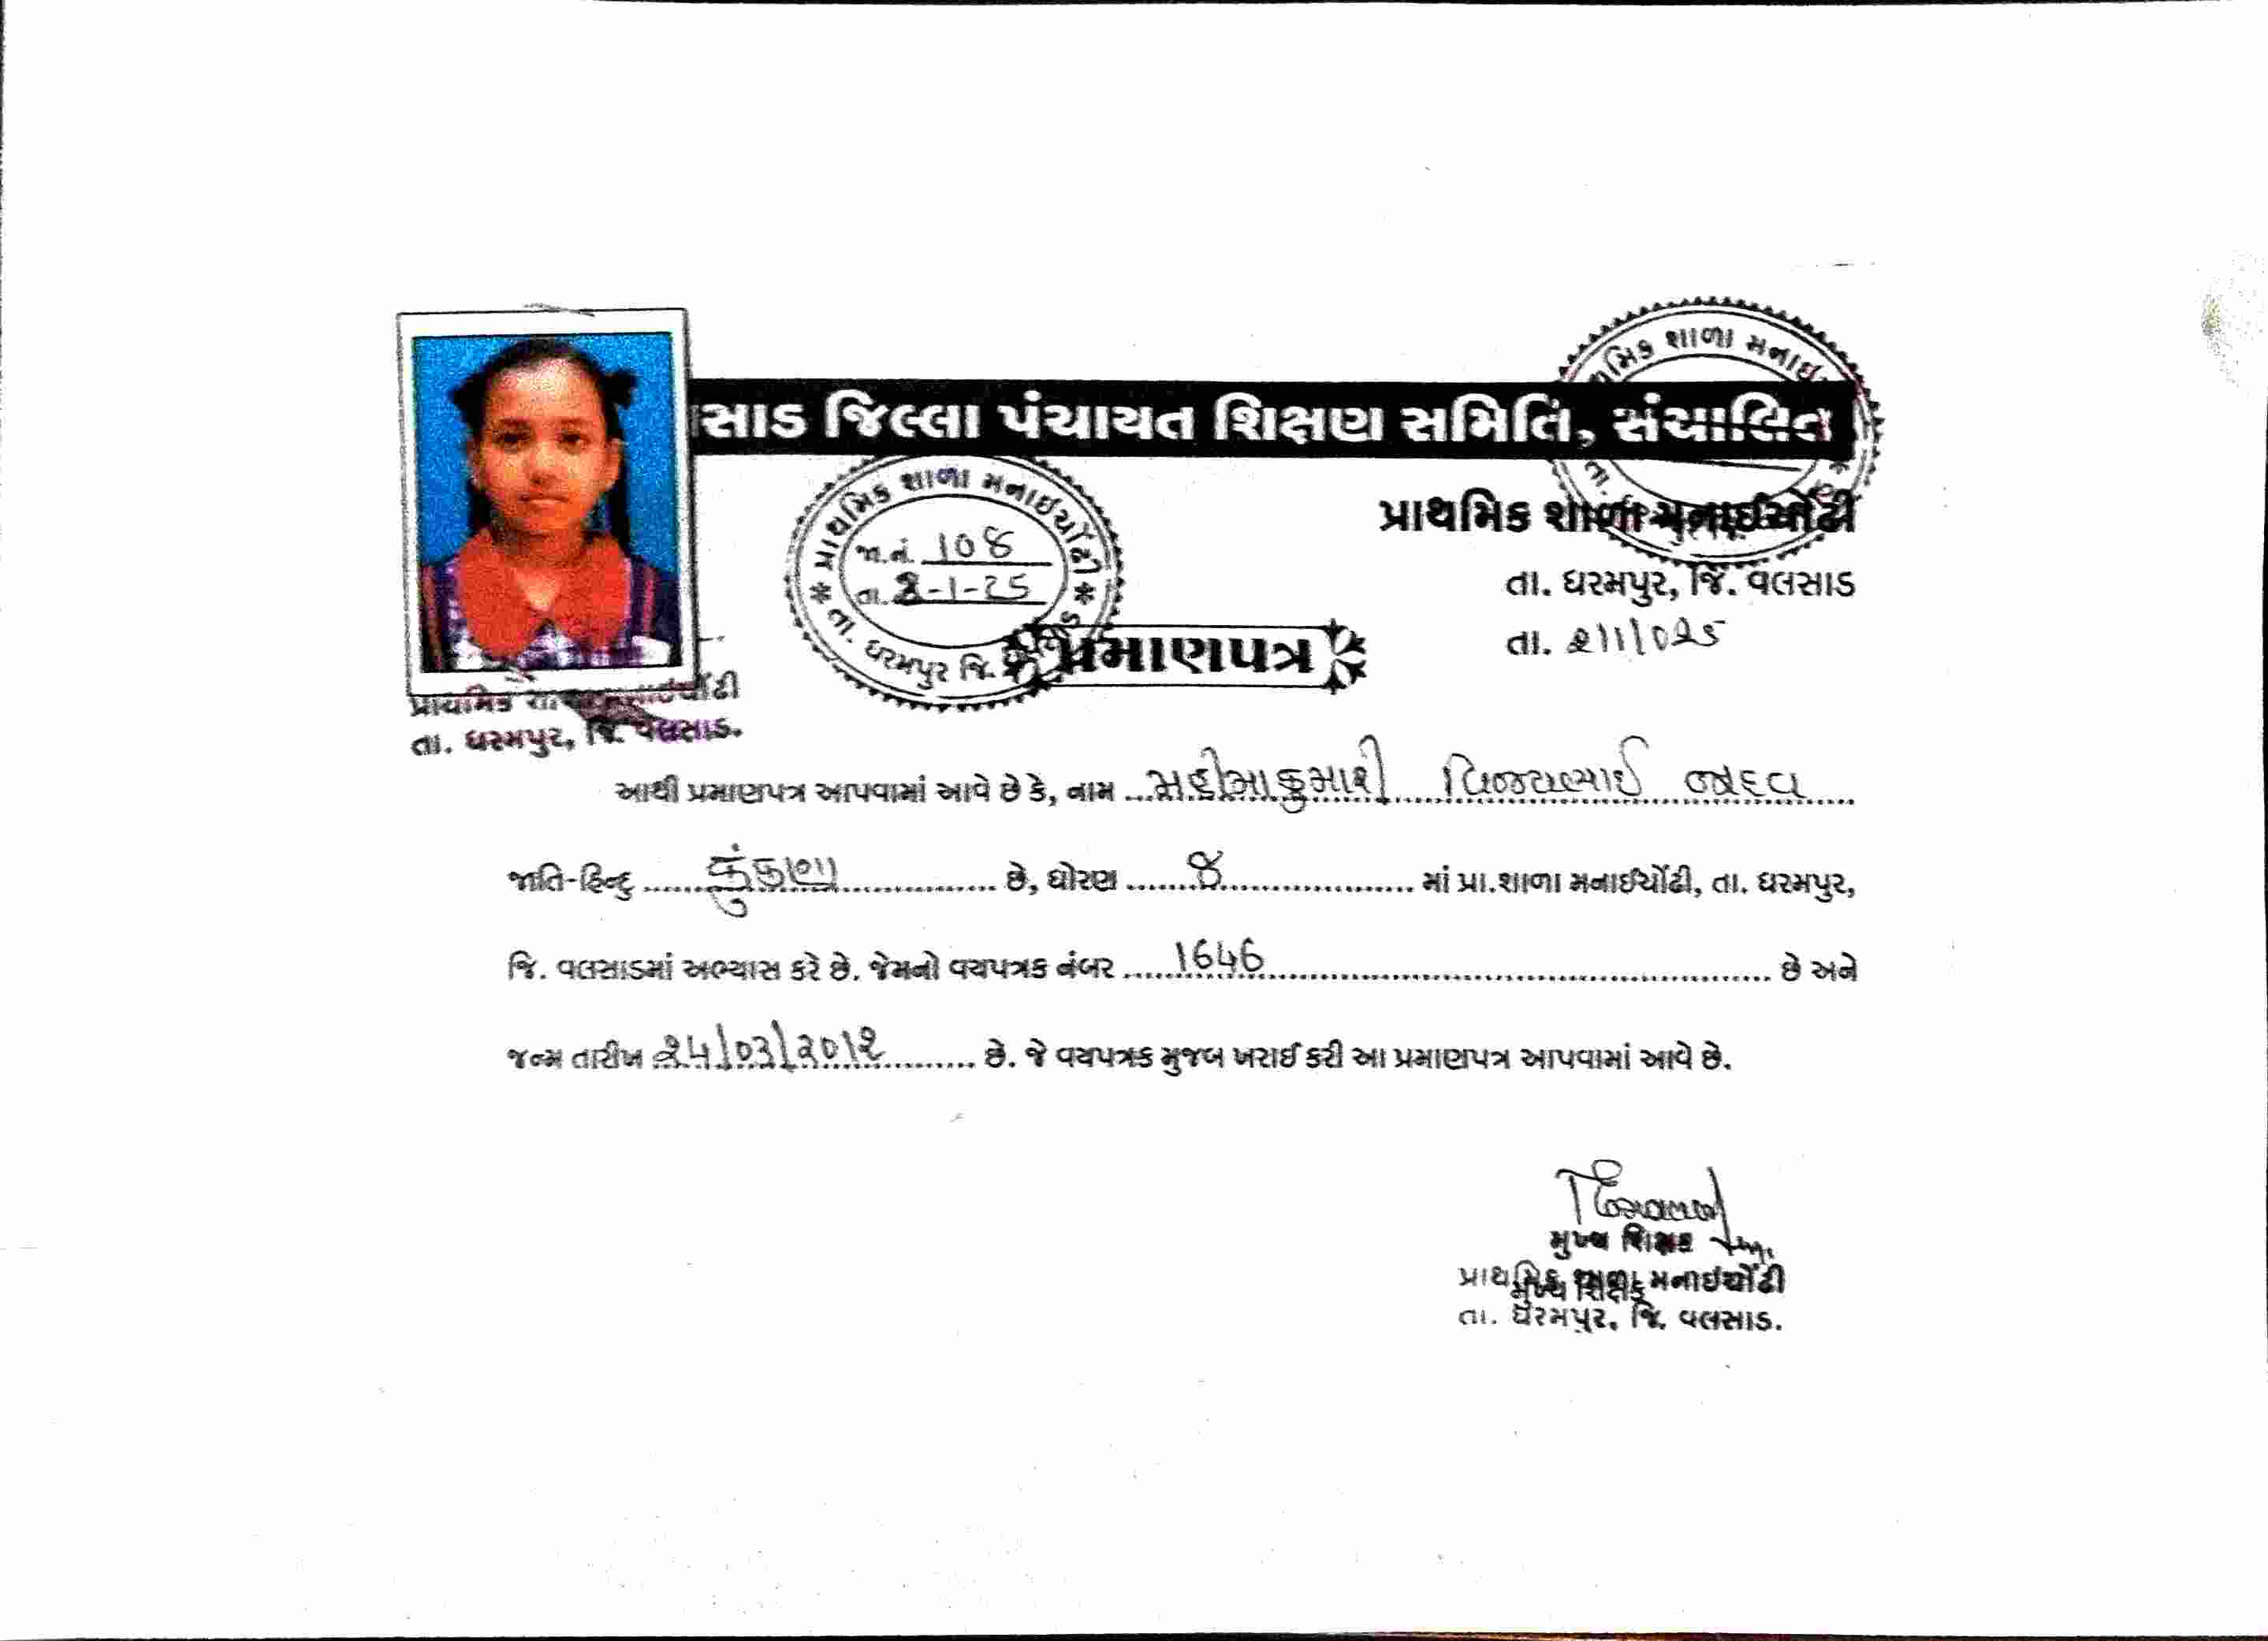 સાડ જિલ્લા પંચાયત શિક્ષણ સમિતિ, સંચાલિત
પ્રાથમિક શાળા મનાઈચોંઢી
તા. ધરમપુર, જિ. વલસાડ
તા. ૨/૧/૦૨૫
પ્રાથમિક શાળા મનાઇચોંઢી
જા.નં. ૧૦૪
તા. ૨-૧-૨૫
તા. ધરમપુર જિ.
પ્રમાણપત્ર
મિક શાળા મનાઇ
તા.
પ્રાથમિક શા મનાઇચોંઢી
તા. ધરમપુર, જિ. વલસાડ.
આથી પ્રમાણપત્ર આપવામાં આવે છે કે, નામ મહીમાકુમારી વિજયભાઈ જાદવ
જાતિ-હિન્દુ કુંકણા છે, ધોરણ માં પ્રા.શાળા મનાઈચોંઢી, તા. ધરમપુર,
જિ. વલસાડમાં અભ્યાસ કરે છે. જેમનો વયપત્રક નંબર 1646 છે અને
જન્મ તારીખ ૨૫/૦૩/૨૦૧૨ છે. જે વયપત્રક મુજબ ખરાઈ કરી આ પ્રમાણપત્ર આપવામાં આવે છે.
મુખ્ય શિક્ષક
પ્રાથમિક શાળા મનાઇચોંઢી
મુખ્ય શિક્ષક
તા. ધરમપુર, જિ. વલસાડ.